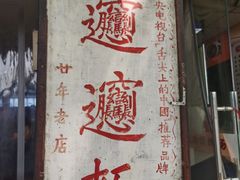 央电视台“舌尖上的中國推荐品牌
𰻞
𰻞
廿年老店